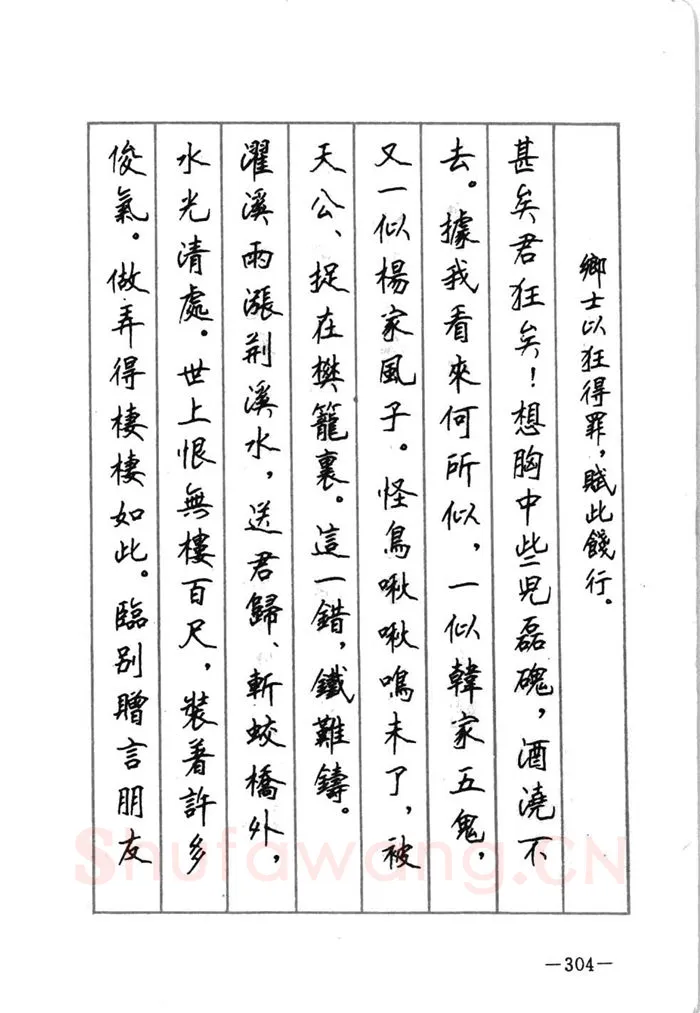 鄉士以狂得罪，賦此餞行。
甚矣君狂矣！想胸中些兒磊磈，酒澆不
去。據我看來何所似，一似韓家五鬼，
又一似楊家風子。怪鳥啾啾鳴未了，被
天公、捉在樊籠裏。這一錯，鐵難鑄。
濯溪雨漲荆溪水，送君歸、斬蛟橋外，
水光清處。世上恨無樓百尺，裝着許多
俊氣。做弄得棲棲如此。臨别贈言朋友
Shufawang.CN
—304—